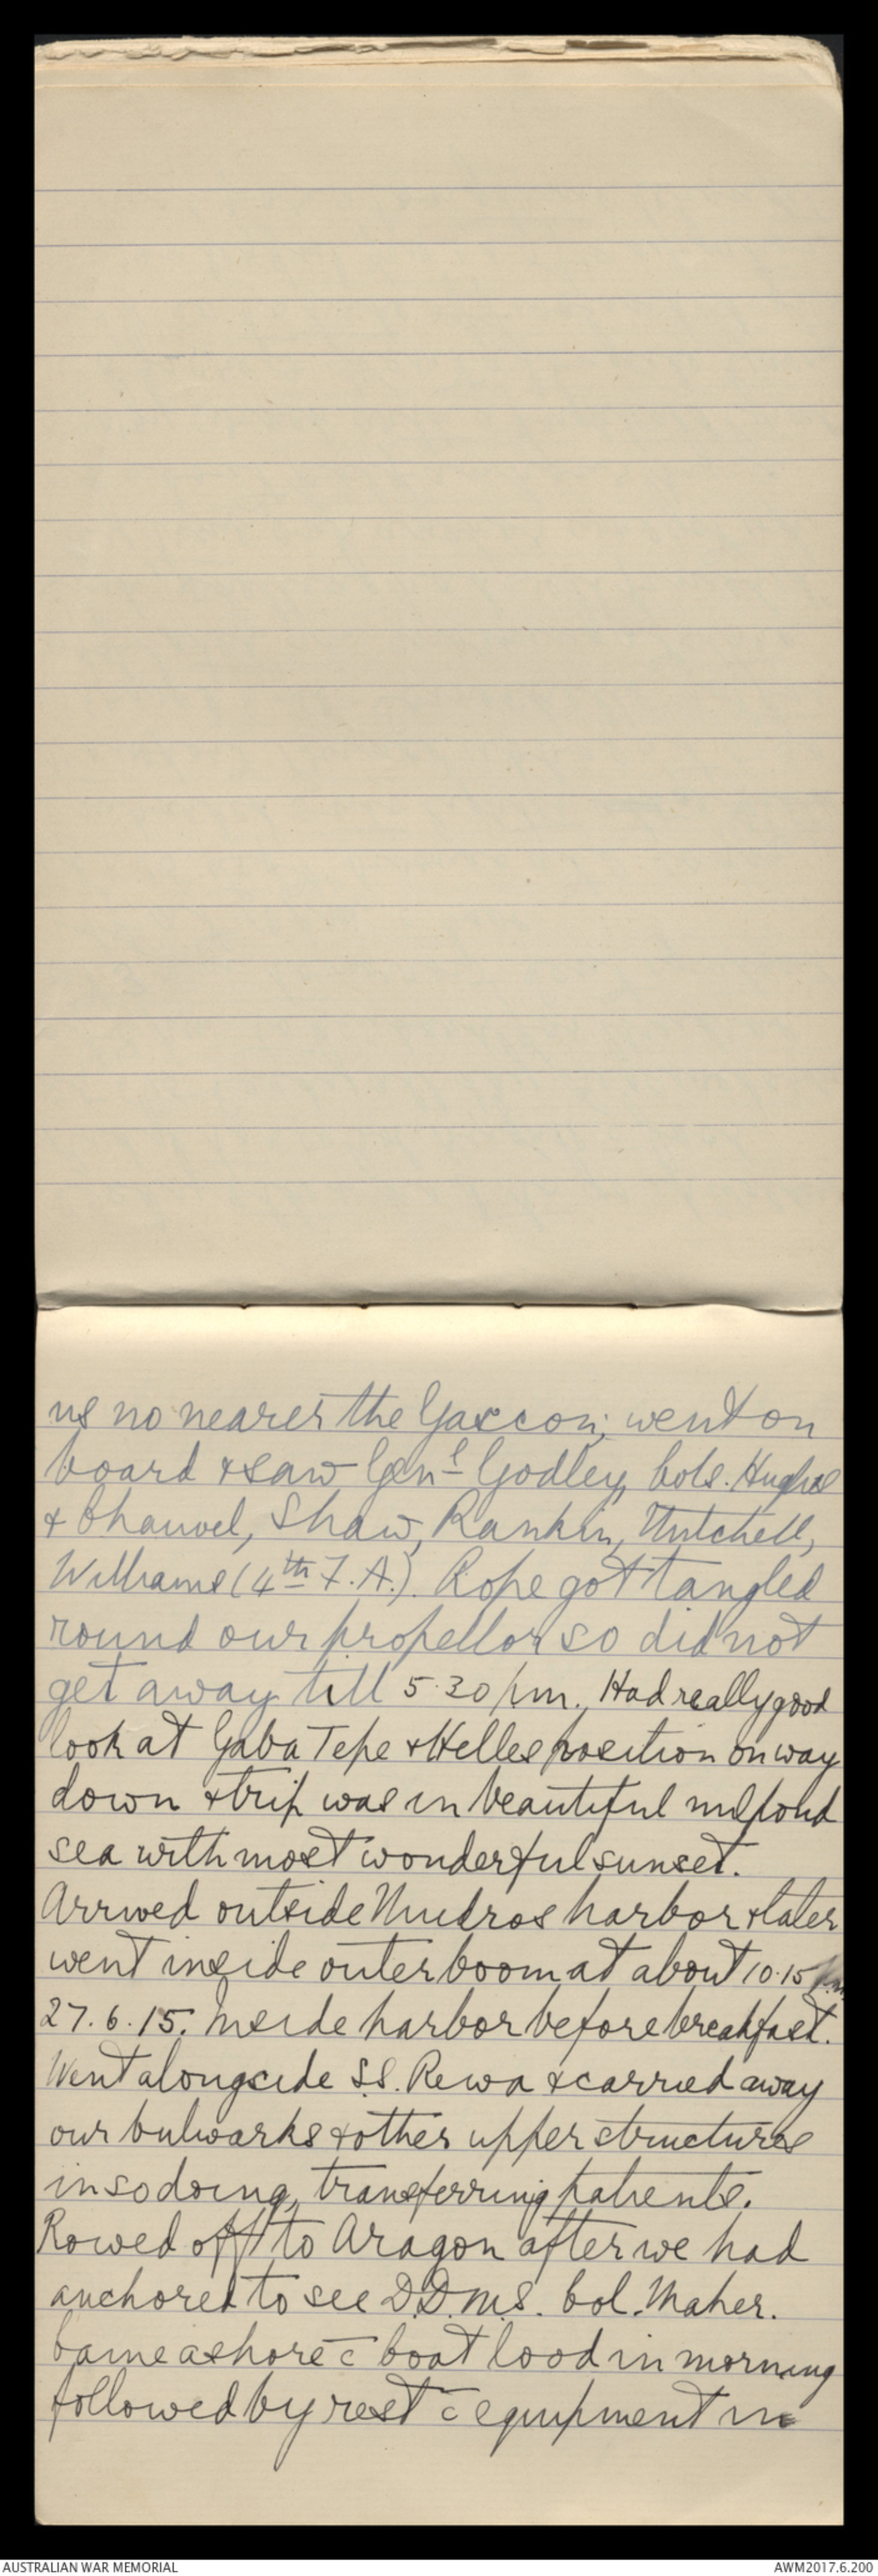 us no nearer the Gascon; went on
board & saw Genl Godley, Cols. Hughes
& Chauvel, Shaw, Rankin, Mitchell,
Williams (4th F.A.). Rope got tangled
round our propellor so did not
get away till 5.30 pm. Had really good
look at Gaba Tepe & Helles position on way
down & trip was in beautiful millpond
sea with most wonderful sunset.
Arrived outside Mudros harbor & later
went inside outer boom at about 10.15 pm
27.6.15. Inside harbor before breakfast.
Went alongside S.S. Rewa & carried away
our bulwarks & other upper structures
in so doing, transferring patients.
Rowed off to Aragon after we had
anchored to see D.D.M.S. Col. Maher.
Came ashore c̄ boat load in morning
followed by rest c̄ equipment in
AUSTRALIAN WAR MEMORIAL
AWM2017.6.200